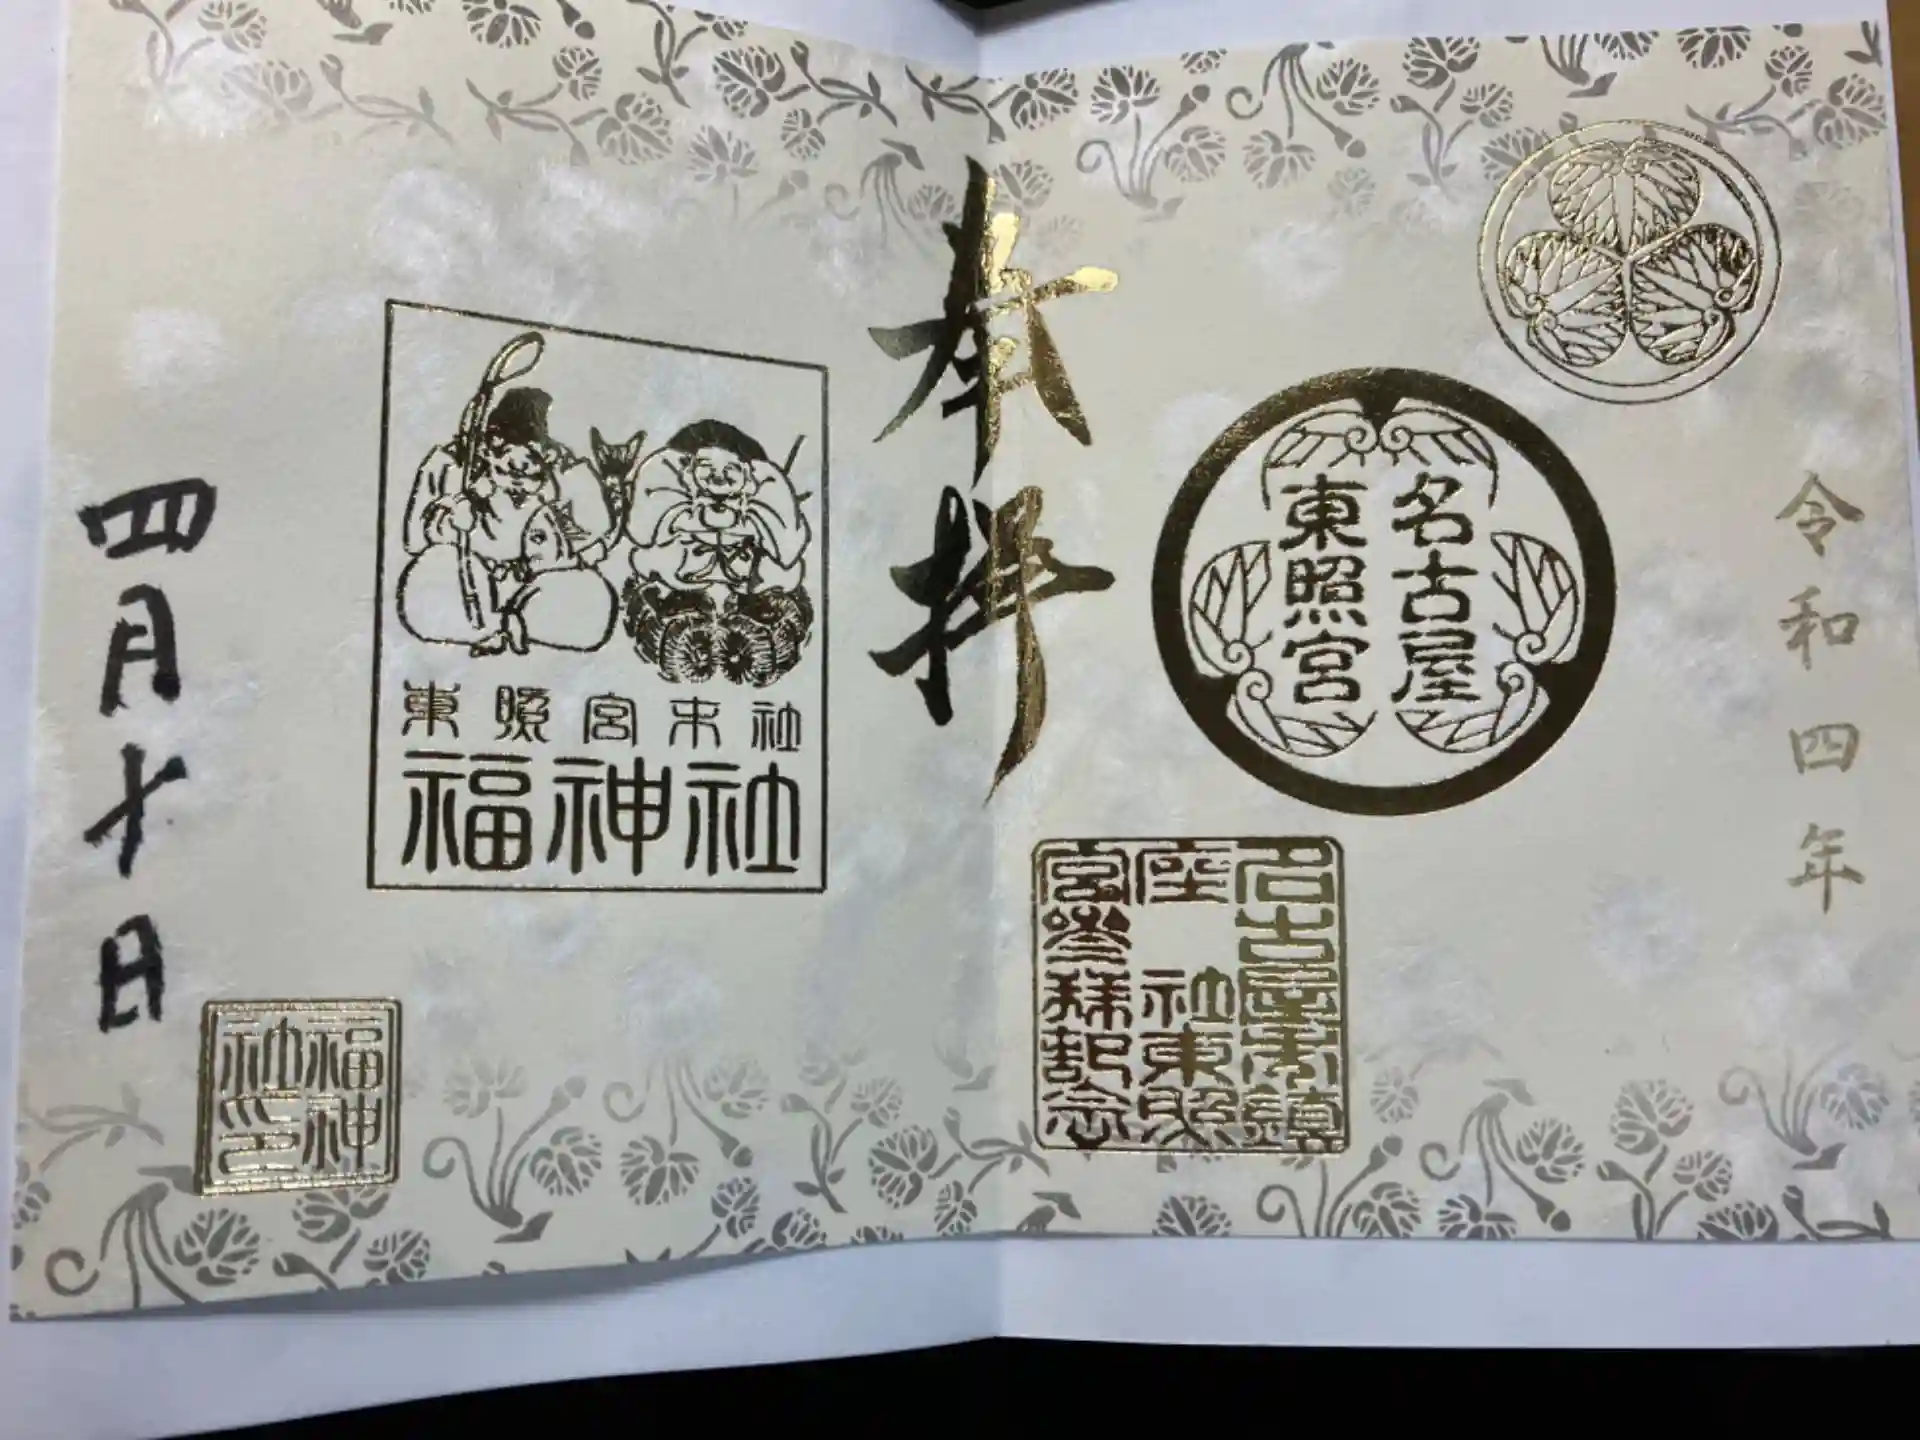 令和四年
名古屋
東照宮
名古屋市鎮
座 社東照
宮参拝記念
奉拝
東照宮末社
福神社
福神
社印
四月十日